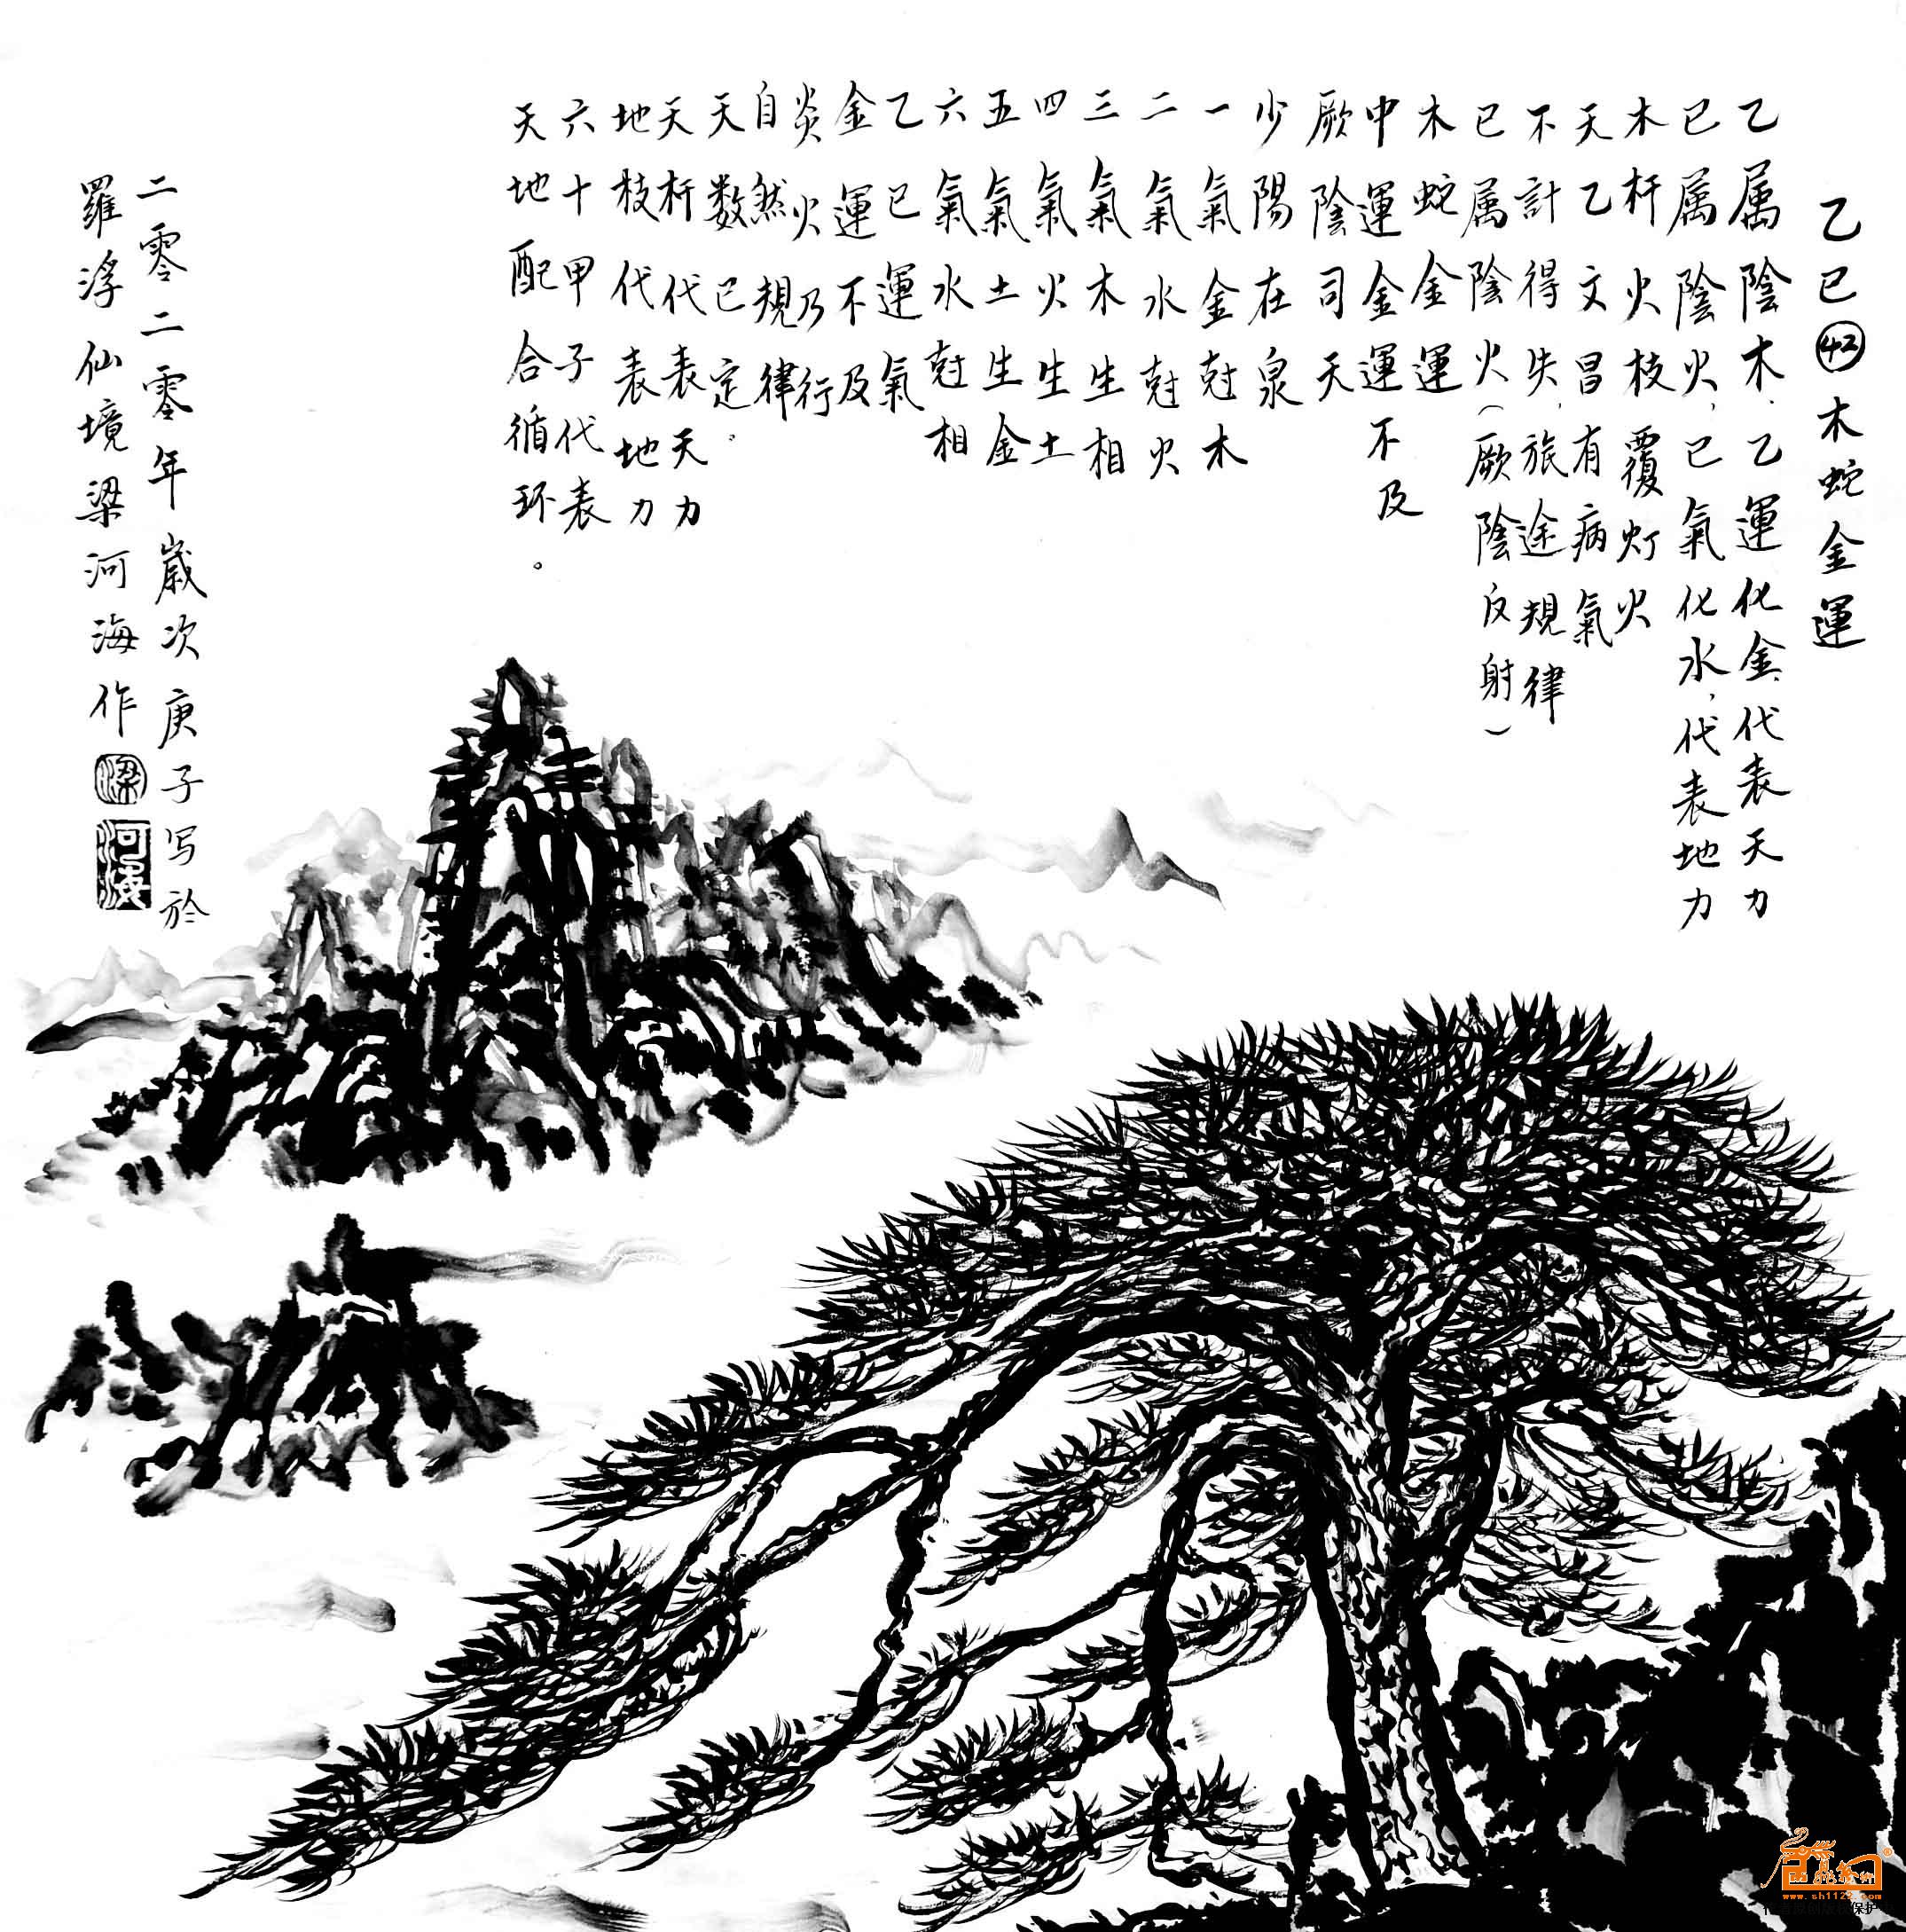 乙巳㊷木蛇金運
乙属陰木、乙運化金、代表天力
巳属陰火、巳氣化水、代表地力
木杆火枝覆灯火
天乙文昌有病氣
不計得失、旅途規律
巳属陰火(厥陰反射)
木蛇金運
中運金運不及
厥陰司天
少陽在泉
一氣金尅木
二氣水尅火
三氣木生相
四氣火生土
五氣土生金
六氣水尅相
乙巳運氣
金運不及
炎火乃行
自然規律
天数已定。
天杆代表天力
地枝代表地力
六十甲子代表
天地配合循环。
二零二零年歲次庚子写於
羅浮仙境梁河海作
梁
河海
www.sh1122.com